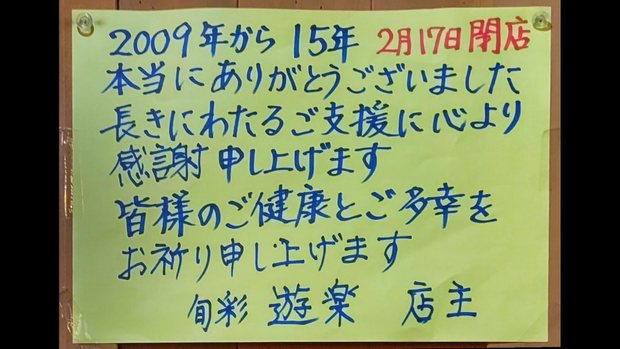 2009年から 15年 2月17日 閉店
本当にありがとうございました
長きにわたるご支援に心より
感謝申し上げます
皆様のご健康とご多幸を
お祈り申し上げます
旬彩 遊楽 店主